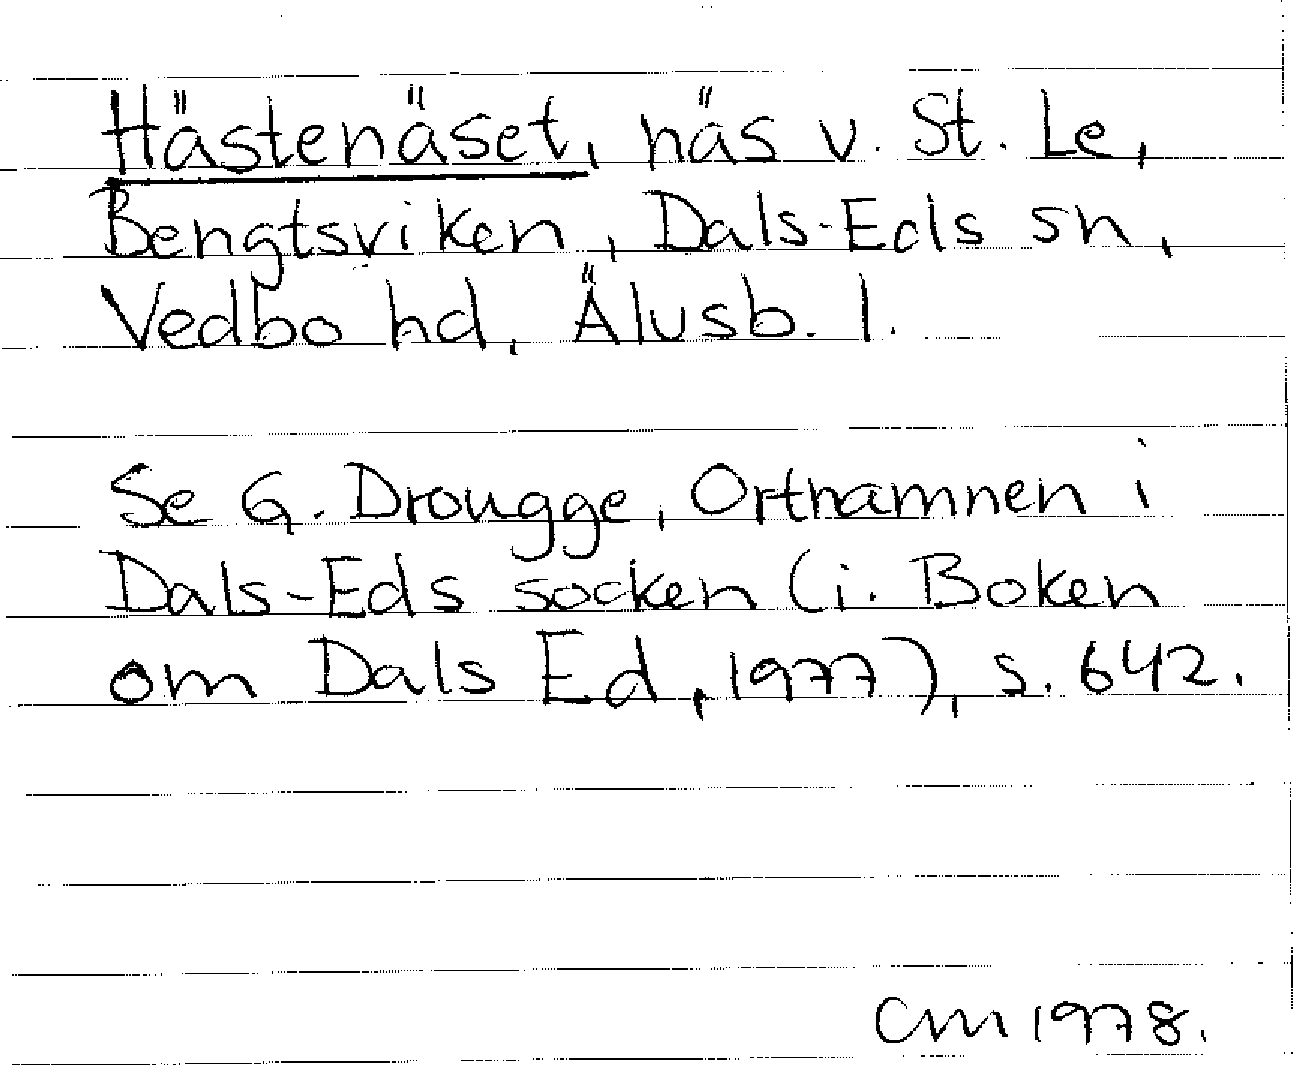 Hästenäset, näs v. St. Le,
Bengtsviken, Dals-Eds sn,
Vedbo hd, Älvsb. l.
Se G. Drougge, Ortnamnen i
Dals-Eds socken (i. Boken
om Dals Ed, 1977), s. 642.
CM 1978.